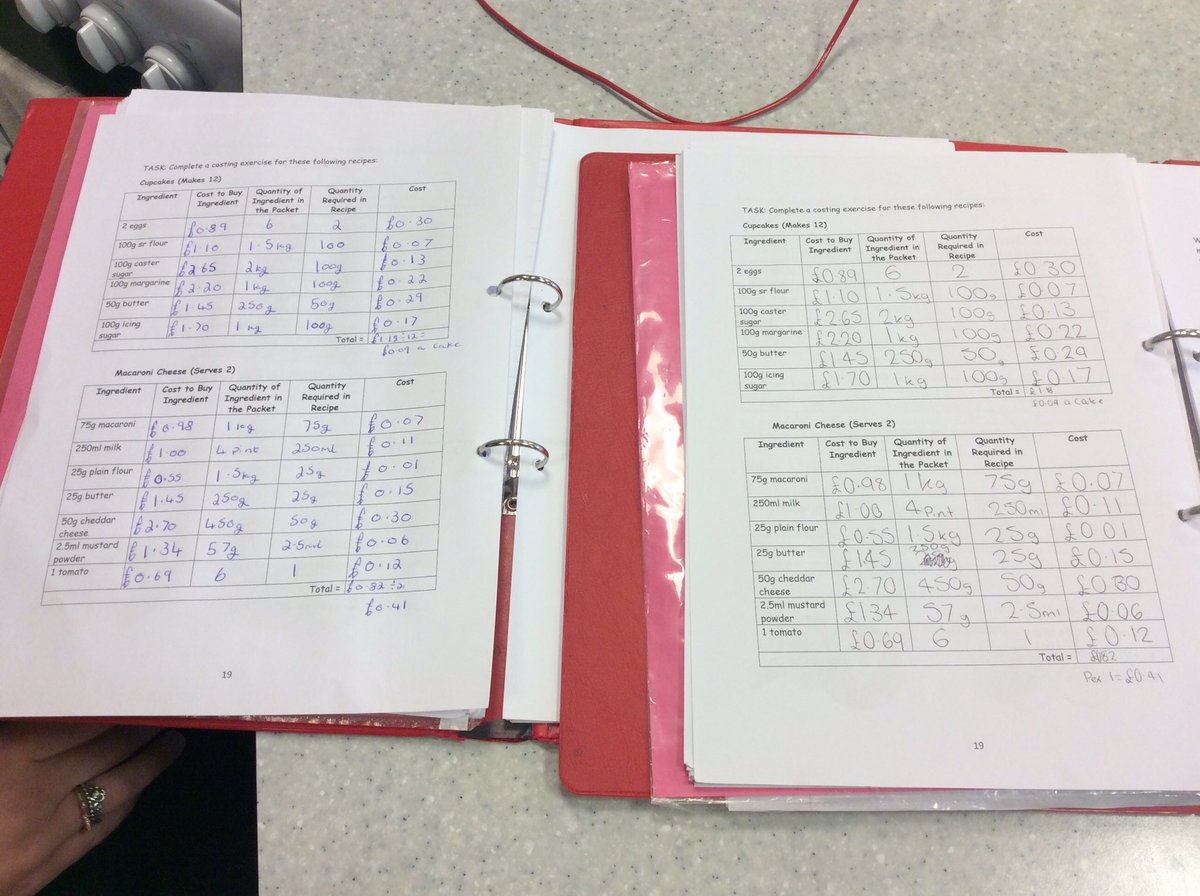 TASK: Complete a costing exercise for these following recipes:
Cupcakes (Makes 12)
Ingredient Cost to Buy Ingredient Quantity of Ingredient in the Packet Quantity Required in Recipe Cost
2 eggs £0.89 6 2 £0.30
100g sr flour £1.10 1.5kg 100 £0.07
100g caster sugar £2.65 2kg 100g £0.13
100g margarine £2.20 1kg 100g £0.22
50g butter £1.45 250g 50g £0.29
100g icing sugar £1.70 1kg 100g £0.17
Total = £1.18÷12=
£0.09 a cake
Macaroni Cheese (Serves 2)
Ingredient Cost to Buy Ingredient Quantity of Ingredient in the Packet Quantity Required in Recipe Cost
75g macaroni £0.98 1kg 75g £0.07
250ml milk £1.00 4 pint 250ml £0.11
25g plain flour £0.55 1.5kg 25g £0.01
25g butter £1.45 250g 25g £0.15
50g cheddar cheese £2.70 450g 50g £0.30
2.5ml mustard powder £1.34 57g 2.5ml £0.06
1 tomato £0.69 6 1 £0.12
Total = £0.82÷2
£0.41
19
TASK: Complete a costing exercise for these following recipes:
Cupcakes (Makes 12)
Ingredient Cost to Buy Ingredient Quantity of Ingredient in the Packet Quantity Required in Recipe Cost
2 eggs £0.89 6 2 £0.30
100g sr flour £1.10 1.5kg 100g £0.07
100g caster sugar £2.65 2kg 100g £0.13
100g margarine £2.20 1kg 100g £0.22
50g butter £1.45 250g 50g £0.29
100g icing sugar £1.70 1kg 100g £0.17
Total = £1.18
£0.09 a cake
Macaroni Cheese (Serves 2)
Ingredient Cost to Buy Ingredient Quantity of Ingredient in the Packet Quantity Required in Recipe Cost
75g macaroni £0.98 1kg 75g £0.07
250ml milk £1.00 4 Pint 250ml £0.11
25g plain flour £0.55 1.5kg 25g £0.01
25g butter £1.45 250g 25g £0.15
50g cheddar cheese £2.70 450g 50g £0.30
2.5ml mustard powder £1.34 57g 2.5ml £0.06
1 tomato £0.69 6 1 £0.12
Total = £0.82
Per 1 = £0.41
19